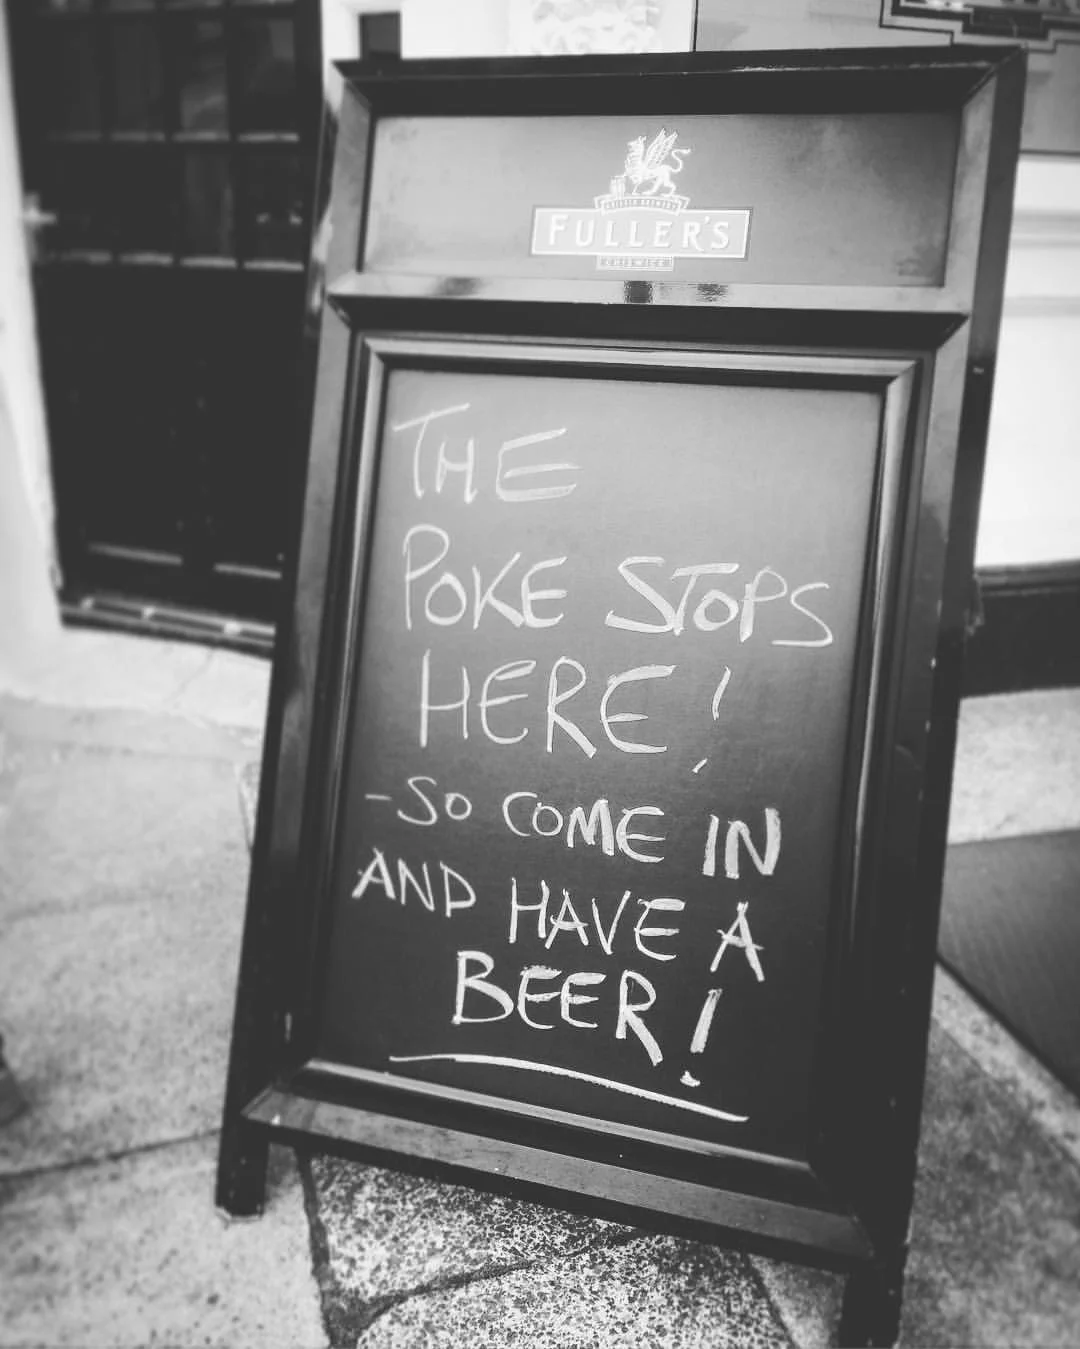 GRIFFIN BREWERY
FULLER'S
CHISWICK
THE
POKE STOPS
HERE!
-SO COME IN
AND HAVE A
BEER!